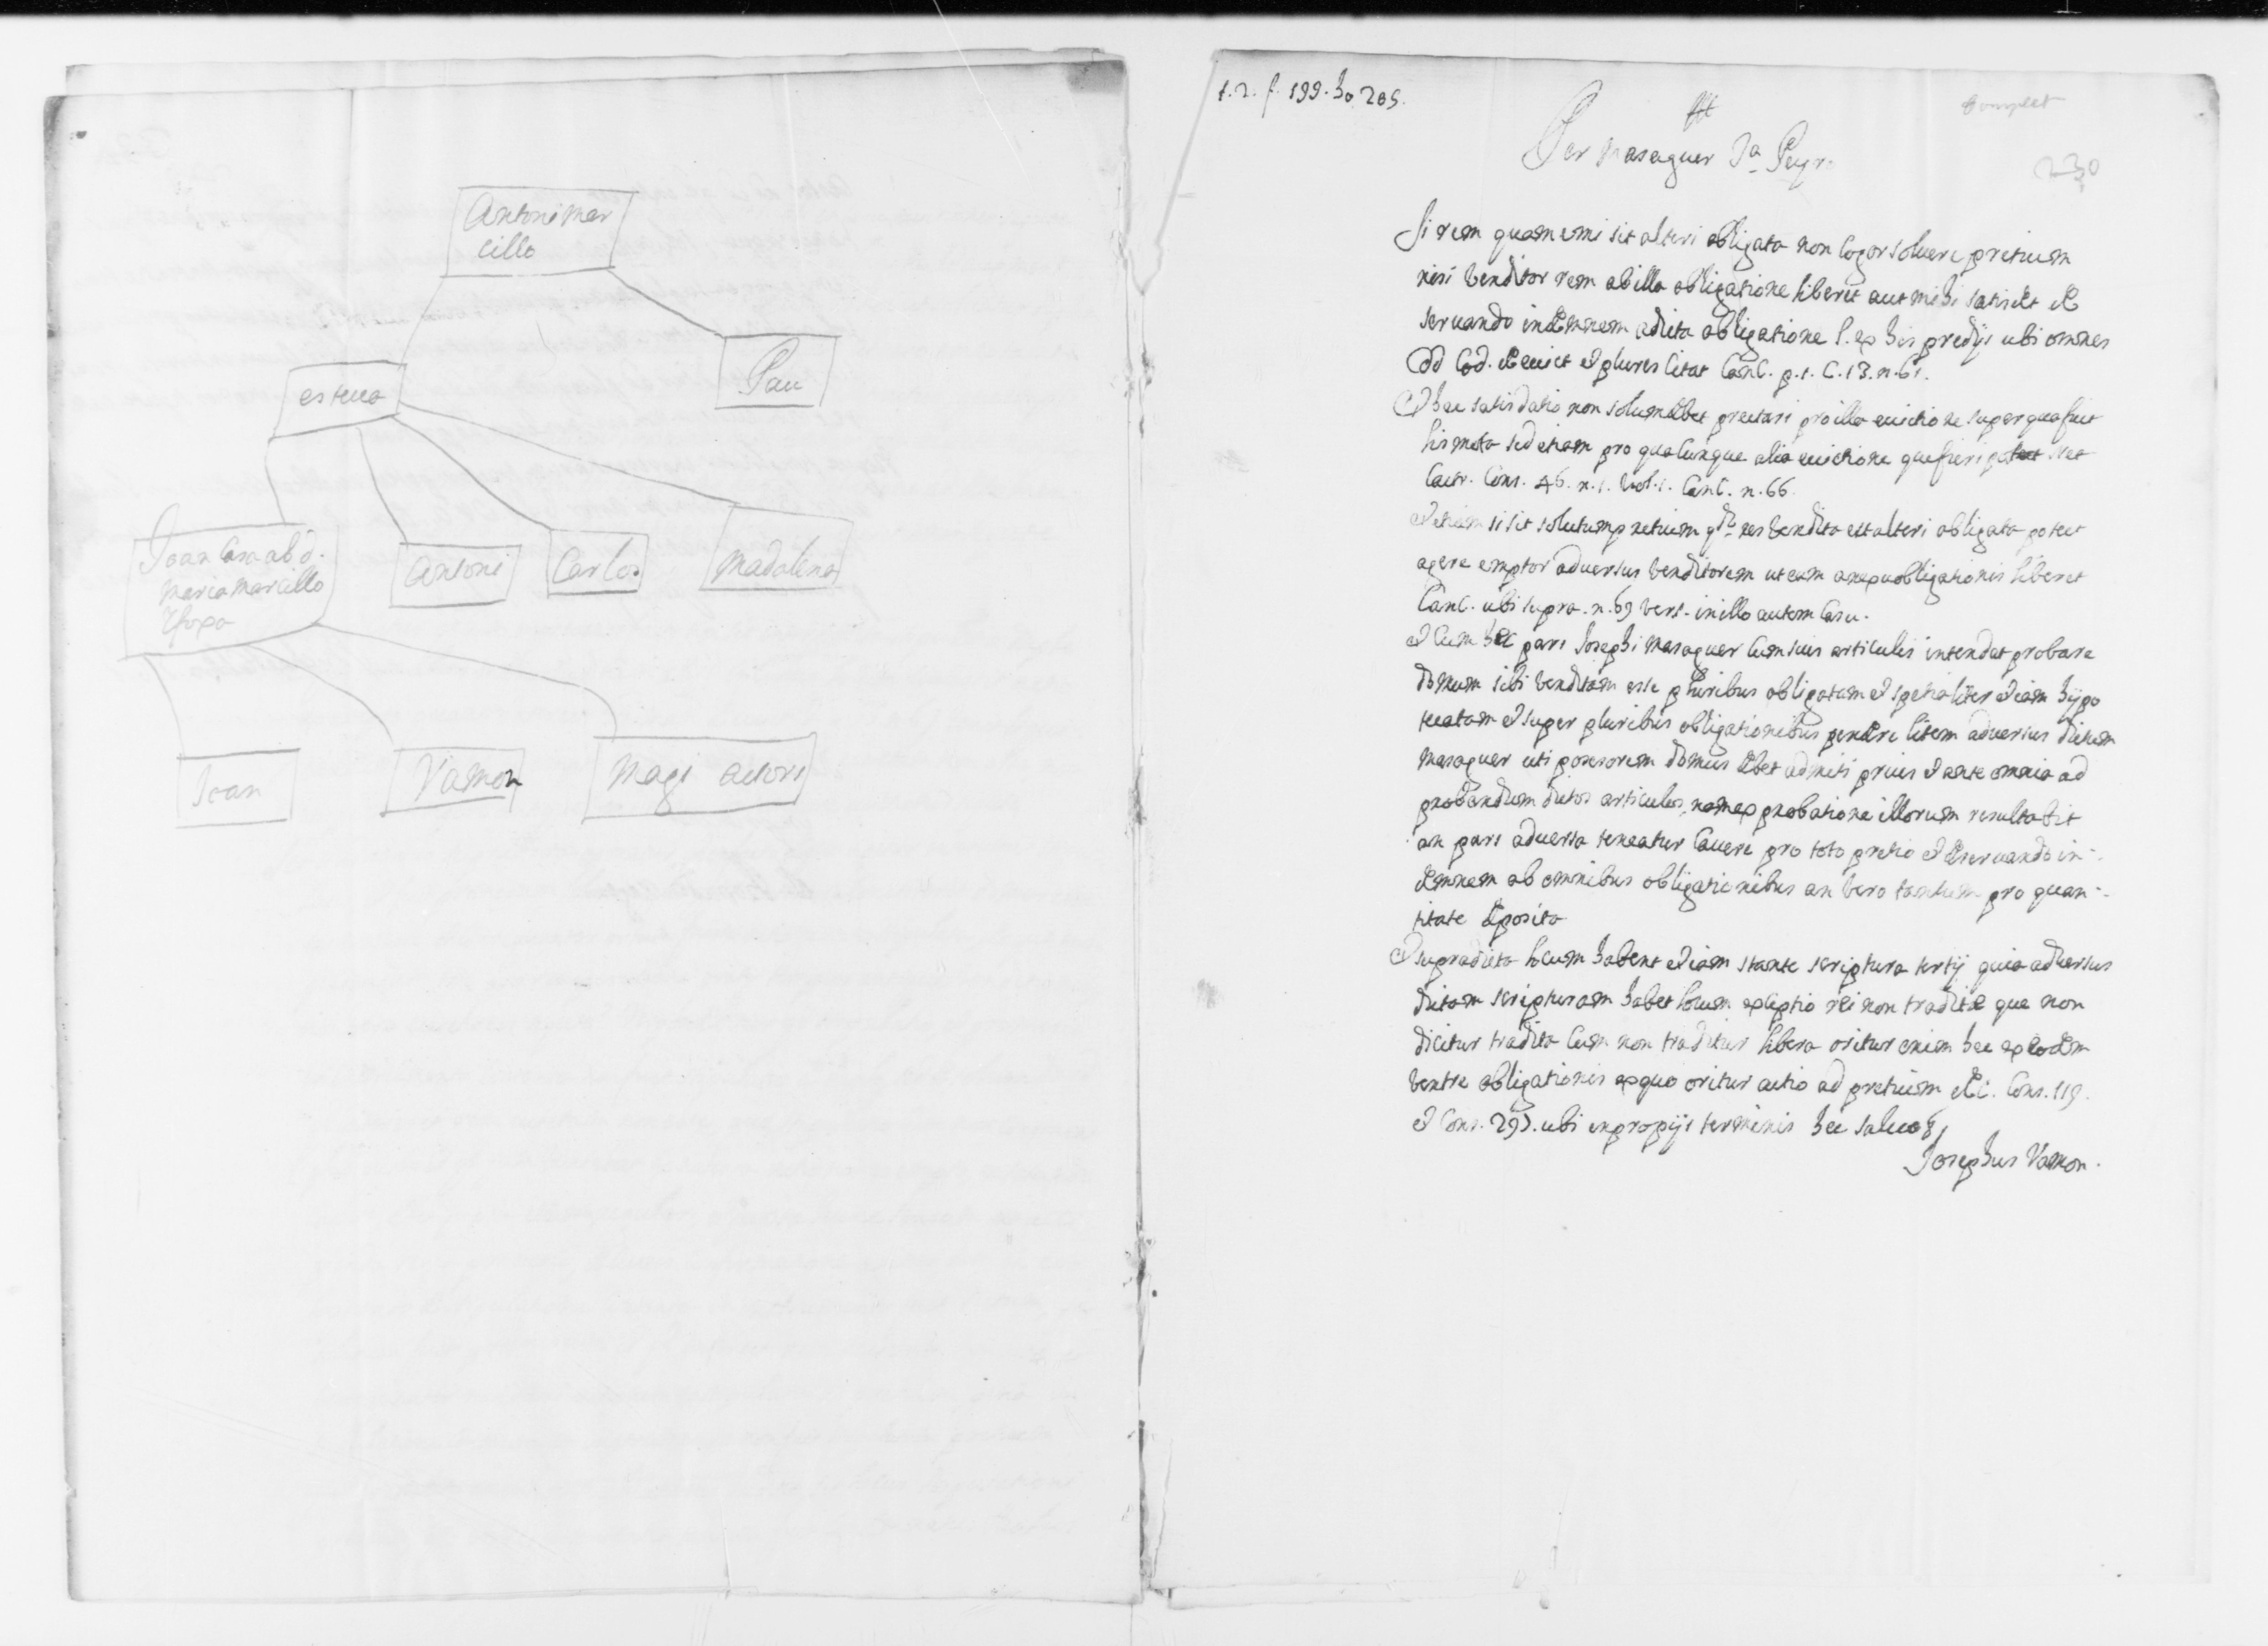 Antoni Mar
cillo
Pau
esteva
Joan Casa ab d.
Maria Marcillo
Antoni
Carlos
Madalena
Joan
Ramon
Magi actors
1.2. f. 199. 205.
Complet
Per Masaguer Ja Peyr
230
Si rem quam emi sit alteri obligata non cogor soluere pretium
nisi venditor rem ab illa obligatione liberet aut mihi satisdet de
seruando indemnem a dicta obligatione l. ex his predijs ubi omnes
Dd Cod. de euict et plures citat Canc. p.1. C.13. n.61.
Et hec satisdatio non solum debet prestari pro illa euictione super qua fuit
lis mota sed etiam pro qualunque alia euictione que fieri
Cons. 46. n.1. vol.1. Canc. n.66.
Et etiam si sit solutum pretium res vendita est alteri obligata potest
agere emptor aduersus venditorem ut eam a nexu obligationis liberet
Canc. ubi supra. n.69 vers. in illo autem casu.
et cum hec pars Josephi Masaguer cum suis articulis intendat probare
domum sibi venditam esse pluribus obligatam et spetialiter etiam hypo
tecatam et super pluribus obligationibus pendere litem aduersus dictum
Masaguer uti posesorem domus debet admiti prius et ante omnia ad
probandum dictos articulos, nam ex probatione illorum resultabit
an pars aduersa teneatur cauere pro toto pretio et de seruando in-
demnem ab omnibus obligationibus an vero tantum pro quan-
titate deposita
Et supradicta locum habent etiam stante scriptura tertij quia aduersus
dictam scripturam habet locum exceptio rei non traditæ que non
dicitur tradita cum non traditur libera oritur enim hec ex eodem
ventre obligationis ex quo oritur actio ad pretium Cons. 119.
et Cons. ubi in propijs terminis hec saluo
Josephus Ramon.